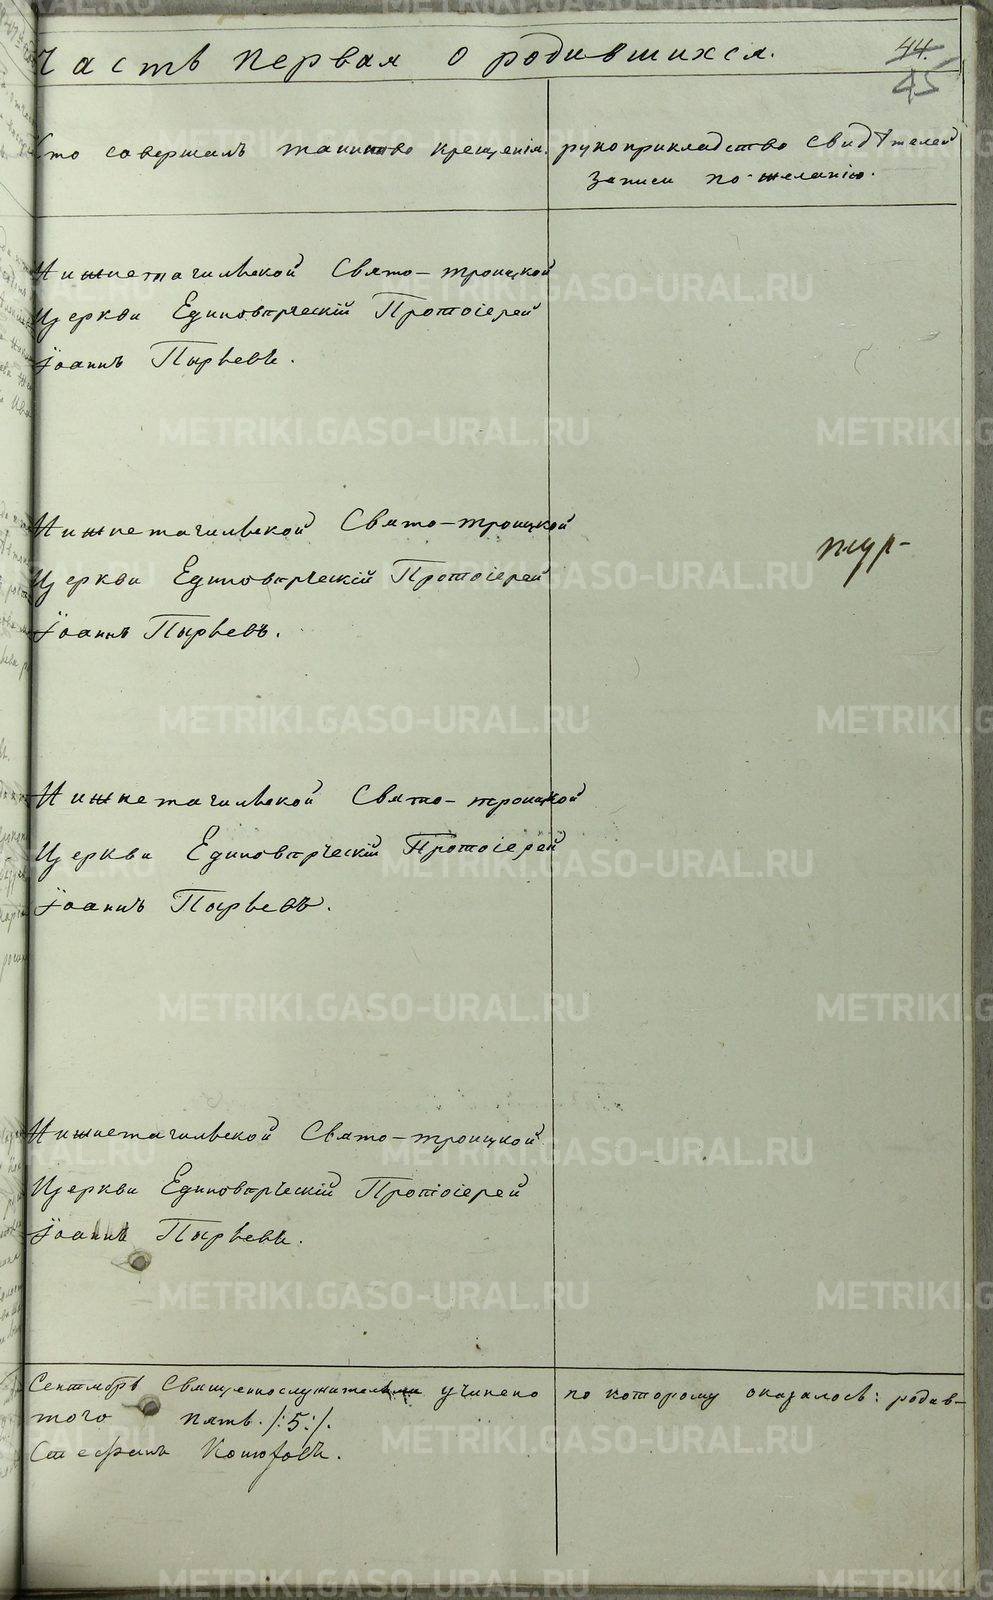 Часть первая о родившихся.
44
45
Кто совершалъ таинство крещенія.
рукоприкладство свидѣтелей
записи по желанію.
Нижнетагильской Свято-троицкой
Церкви Единовѣрческій Протоіерей
Іоаннъ Пырьевъ.
Нижнетагильской Свято-троицкой
Церкви Единовѣрческій Протоіерей
Іоаннъ Пырьевъ.
Нижнетагильской Свято-троицкой
Церкви Единовѣрческій Протоіерей
Іоаннъ Пырьевъ.
Нижнетагильской Свято-троицкой
Церкви Единовѣрческій Протоіерей
Іоаннъ Пырьевъ.
Сентябрь Священнослужителями учинено по которому оказалось: родив-
того пять. /:5:/.
Стефанъ Конюховъ.
METRIKI.GASO-URAL.RU